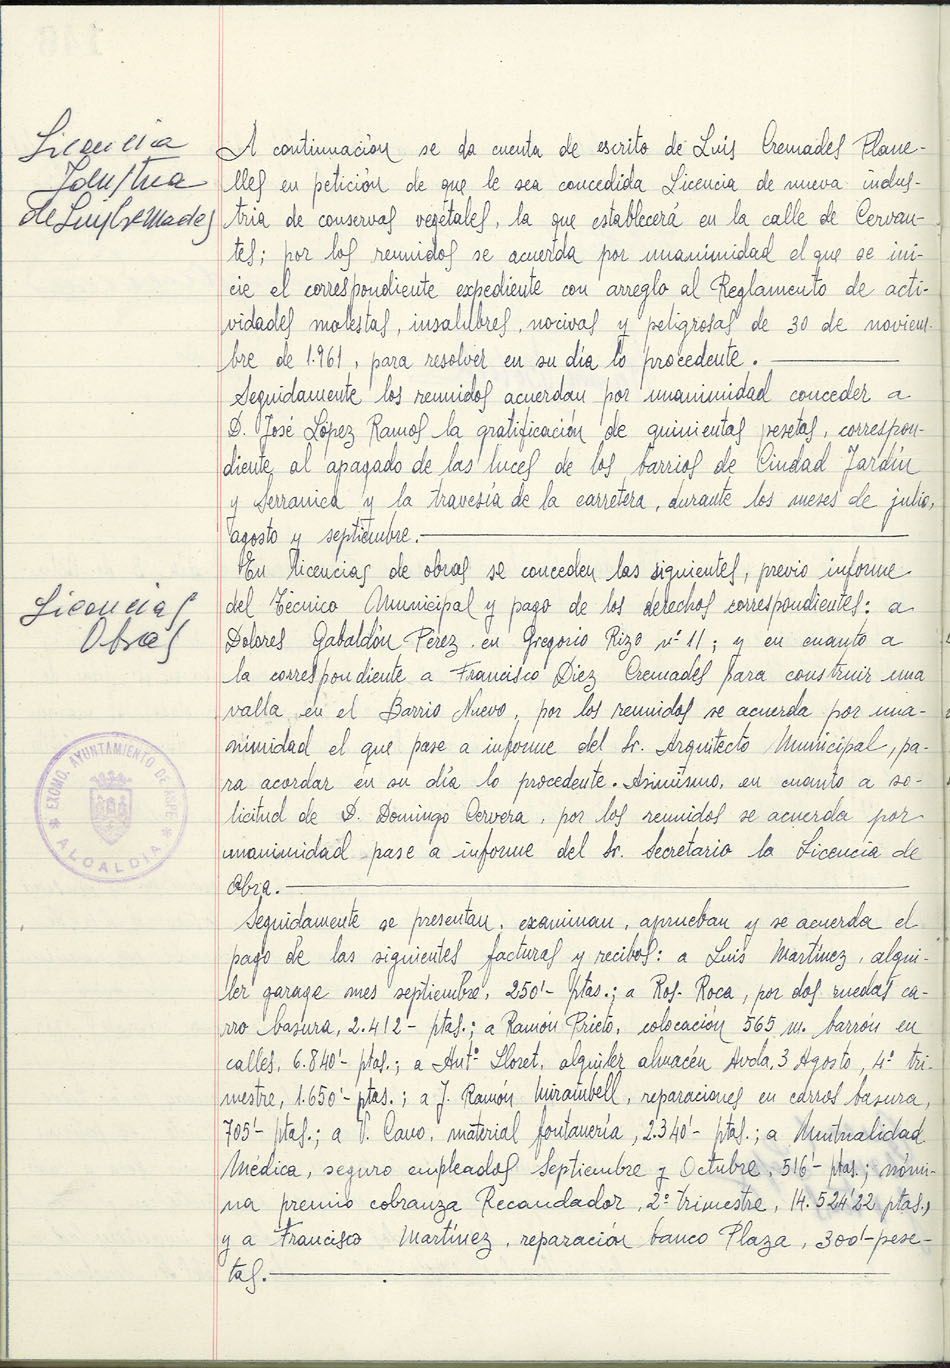 Licencia
Industria
de Luis Cremades
A continuación se da cuenta de escrito de Luis Cremades Plane-
lles en petición de que le sea concedida Licencia de nueva indus-
tria de conservas vegetales, la que establecerá en la calle de Cervan-
tes; por los reunidos se acuerda por unanimidad el que se ini-
cie el correspondiente expediente con arreglo al Reglamento de acti-
vidades molestas, insalubres, nocivas y peligrosas de 30 de noviem-
bre de 1.961, para resolver en su día lo procedente.
Seguidamente los reunidos acuerdan por unanimidad conceder a
D. José López Ramos la gratificación de quinientas pesetas, correspon-
diente al apagado de las luces de los barrios de Ciudad Jardín
y Serranica y la travesía de la carretera, durante los meses de julio,
agosto y septiembre.
Licencias
Obras
En licencias de obras se conceden las siguientes, previo informe
del Técnico Municipal y pago de los derechos correspondientes: a
Dolores Gabaldón Pérez en Gregorio Rizo nº 11; y en cuanto a
la correspondiente a Francisco Díez Cremades para construir una
valla en el Barrio Nuevo, por los reunidos se acuerda por una-
nimidad el que pase a informe del Sr. Arquitecto Municipal, pa-
ra acordar en su día lo procedente. Asimismo, en cuanto a so-
licitud de D. Domingo Cervera, por los reunidos se acuerda por
unanimidad pase a informe del Sr. Secretario la Licencia de
obra.
EXCMO. AYUNTAMIENTO DE ASPE
* ALCALDIA *
Seguidamente se presentan, examinan, aprueban y se acuerda el
pago de las siguientes facturas y recibos: a Luis Martínez, alqui-
ler garage mes septiembre, 250'- ptas.; a Ros-Roca, por dos ruedas ca-
rro basura, 2.412- ptas.; a Ramón Prieto, colocación 565 m. barrón en
calles, 6.840'- ptas.; a Antº Lloret, alquiler almacén Avda, 3 Agosto, 4º tri-
mestre, 1.650'- ptas.; a J. Ramón Mirambell, reparaciones en carros basura,
705'- ptas.; a V. Cavo, material fontanería, 2.340'- ptas.; a Mutualidad
Médica, seguro empleados Septiembre y Octubre, 516'- ptas.; nómi-
na premio cobranza Recaudador, 2º trimestre, 14.524'22 ptas.,
y a Francisco Martínez, reparación banco Plaza, 300'- pese-
tas.